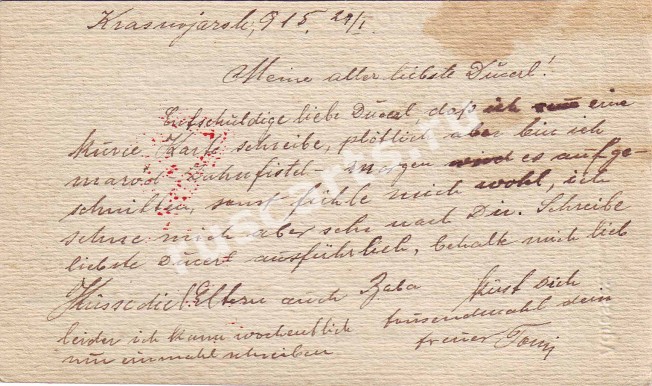 Krasnojarsk, 915. 29/I.
Meine aller liebste Ducerl!
Entschuldige liebe Ducerl daß ich nur eine
kurze Karte schreibe, plötzlich aber bin ich
marod - Zahnfistel - morgen wird es aufge-
schnitten, sonst fühle mich wohl, ich
sehne mich aber sehr nach Dir. Schreibe
liebste Ducerl ausführlich, behalte mich lieb
Küsse die l. Eltern auch Zaba küsst Dich
leider ich kann wochentlich tausendmahl dein
nur einmahl schreiben treuer Tomi